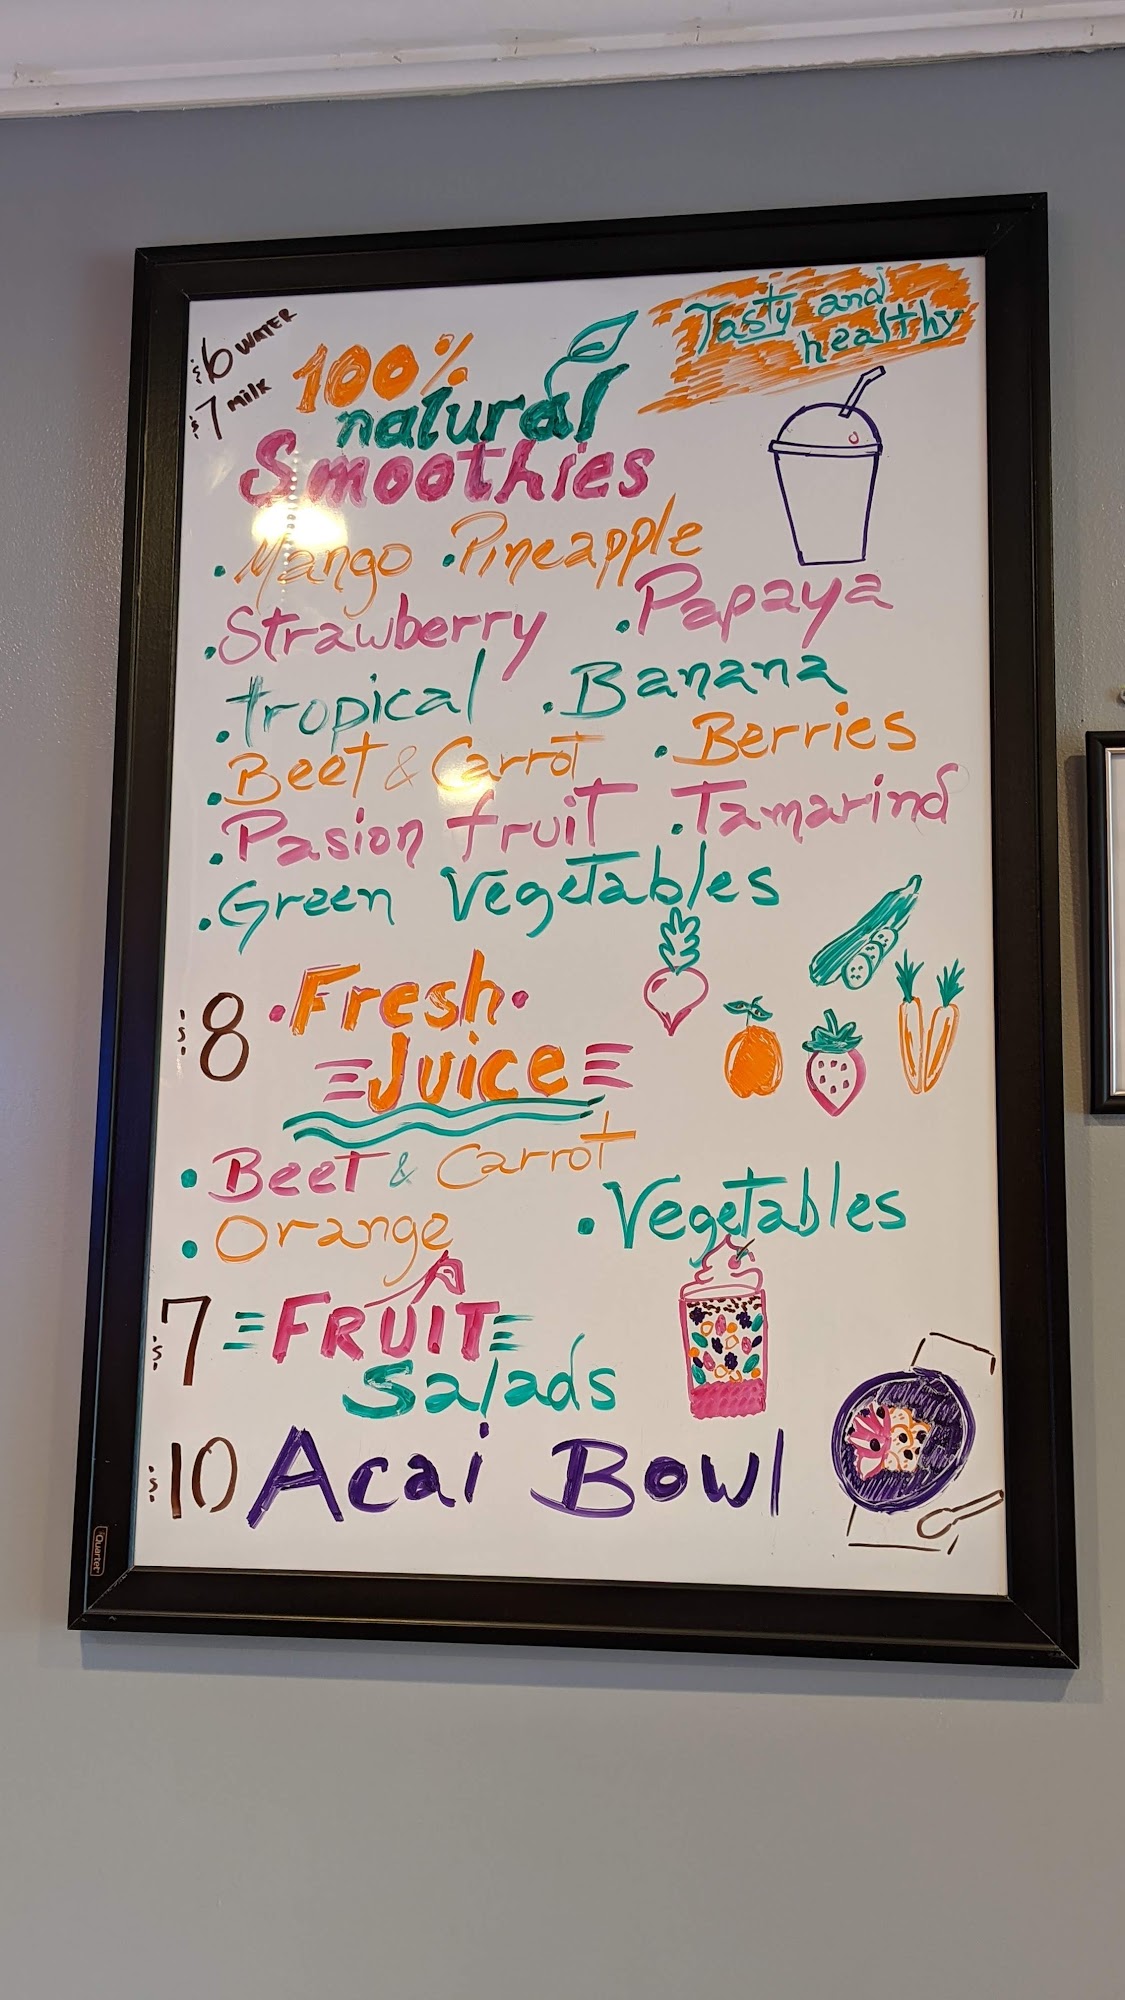 $6 WATER
$7 MILK
100%
natural
Smoothies
Tasty and
healthy
.Mango .Pineapple
.Strawberry .Papaya
.tropical .Banana
.Beet & Carrot .Berries
.Pasion fruit .Tamarind
.Green Vegetables
$8 .Fresh.
Juice
.Beet & Carrot
.Orange .Vegetables
$7 FRUIT
Salads
$10 Acai Bowl
Quartet